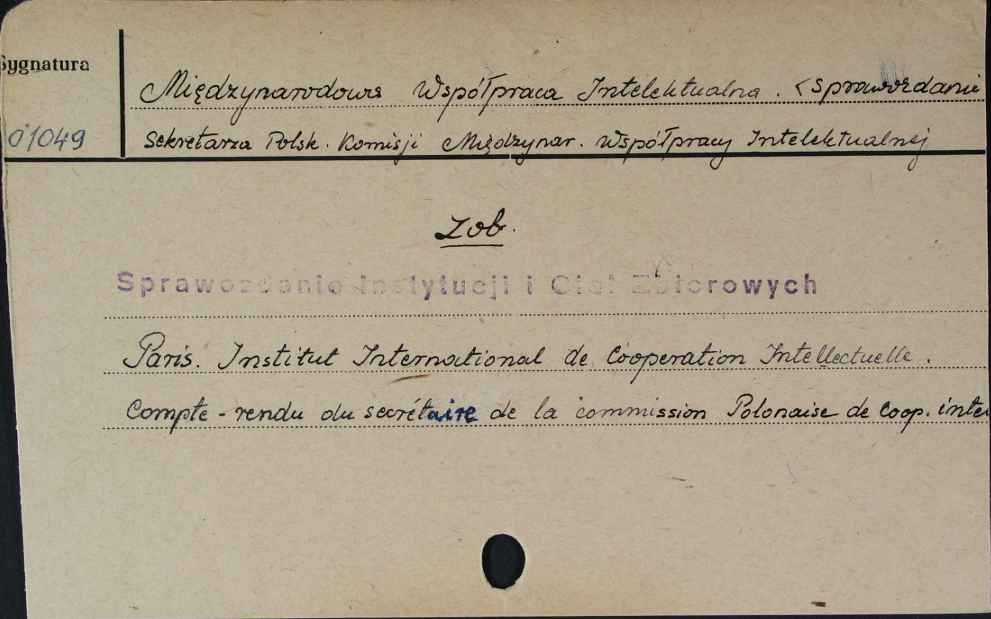 Sygnatura
Międzynarodowa Współpraca Intelektualna. <Sprawozdanie
01049
Sekretarza Polsk. Komisji Międzynar. Współpracy Intelektualnej
Zob.
Sprawozdanie Instytucji i Ciał Zbiorowych
Paris. Institut International de Cooperation Intellectuelle.
Compte-rendu du secrétaire de la commission Polonaise de Coop. inte